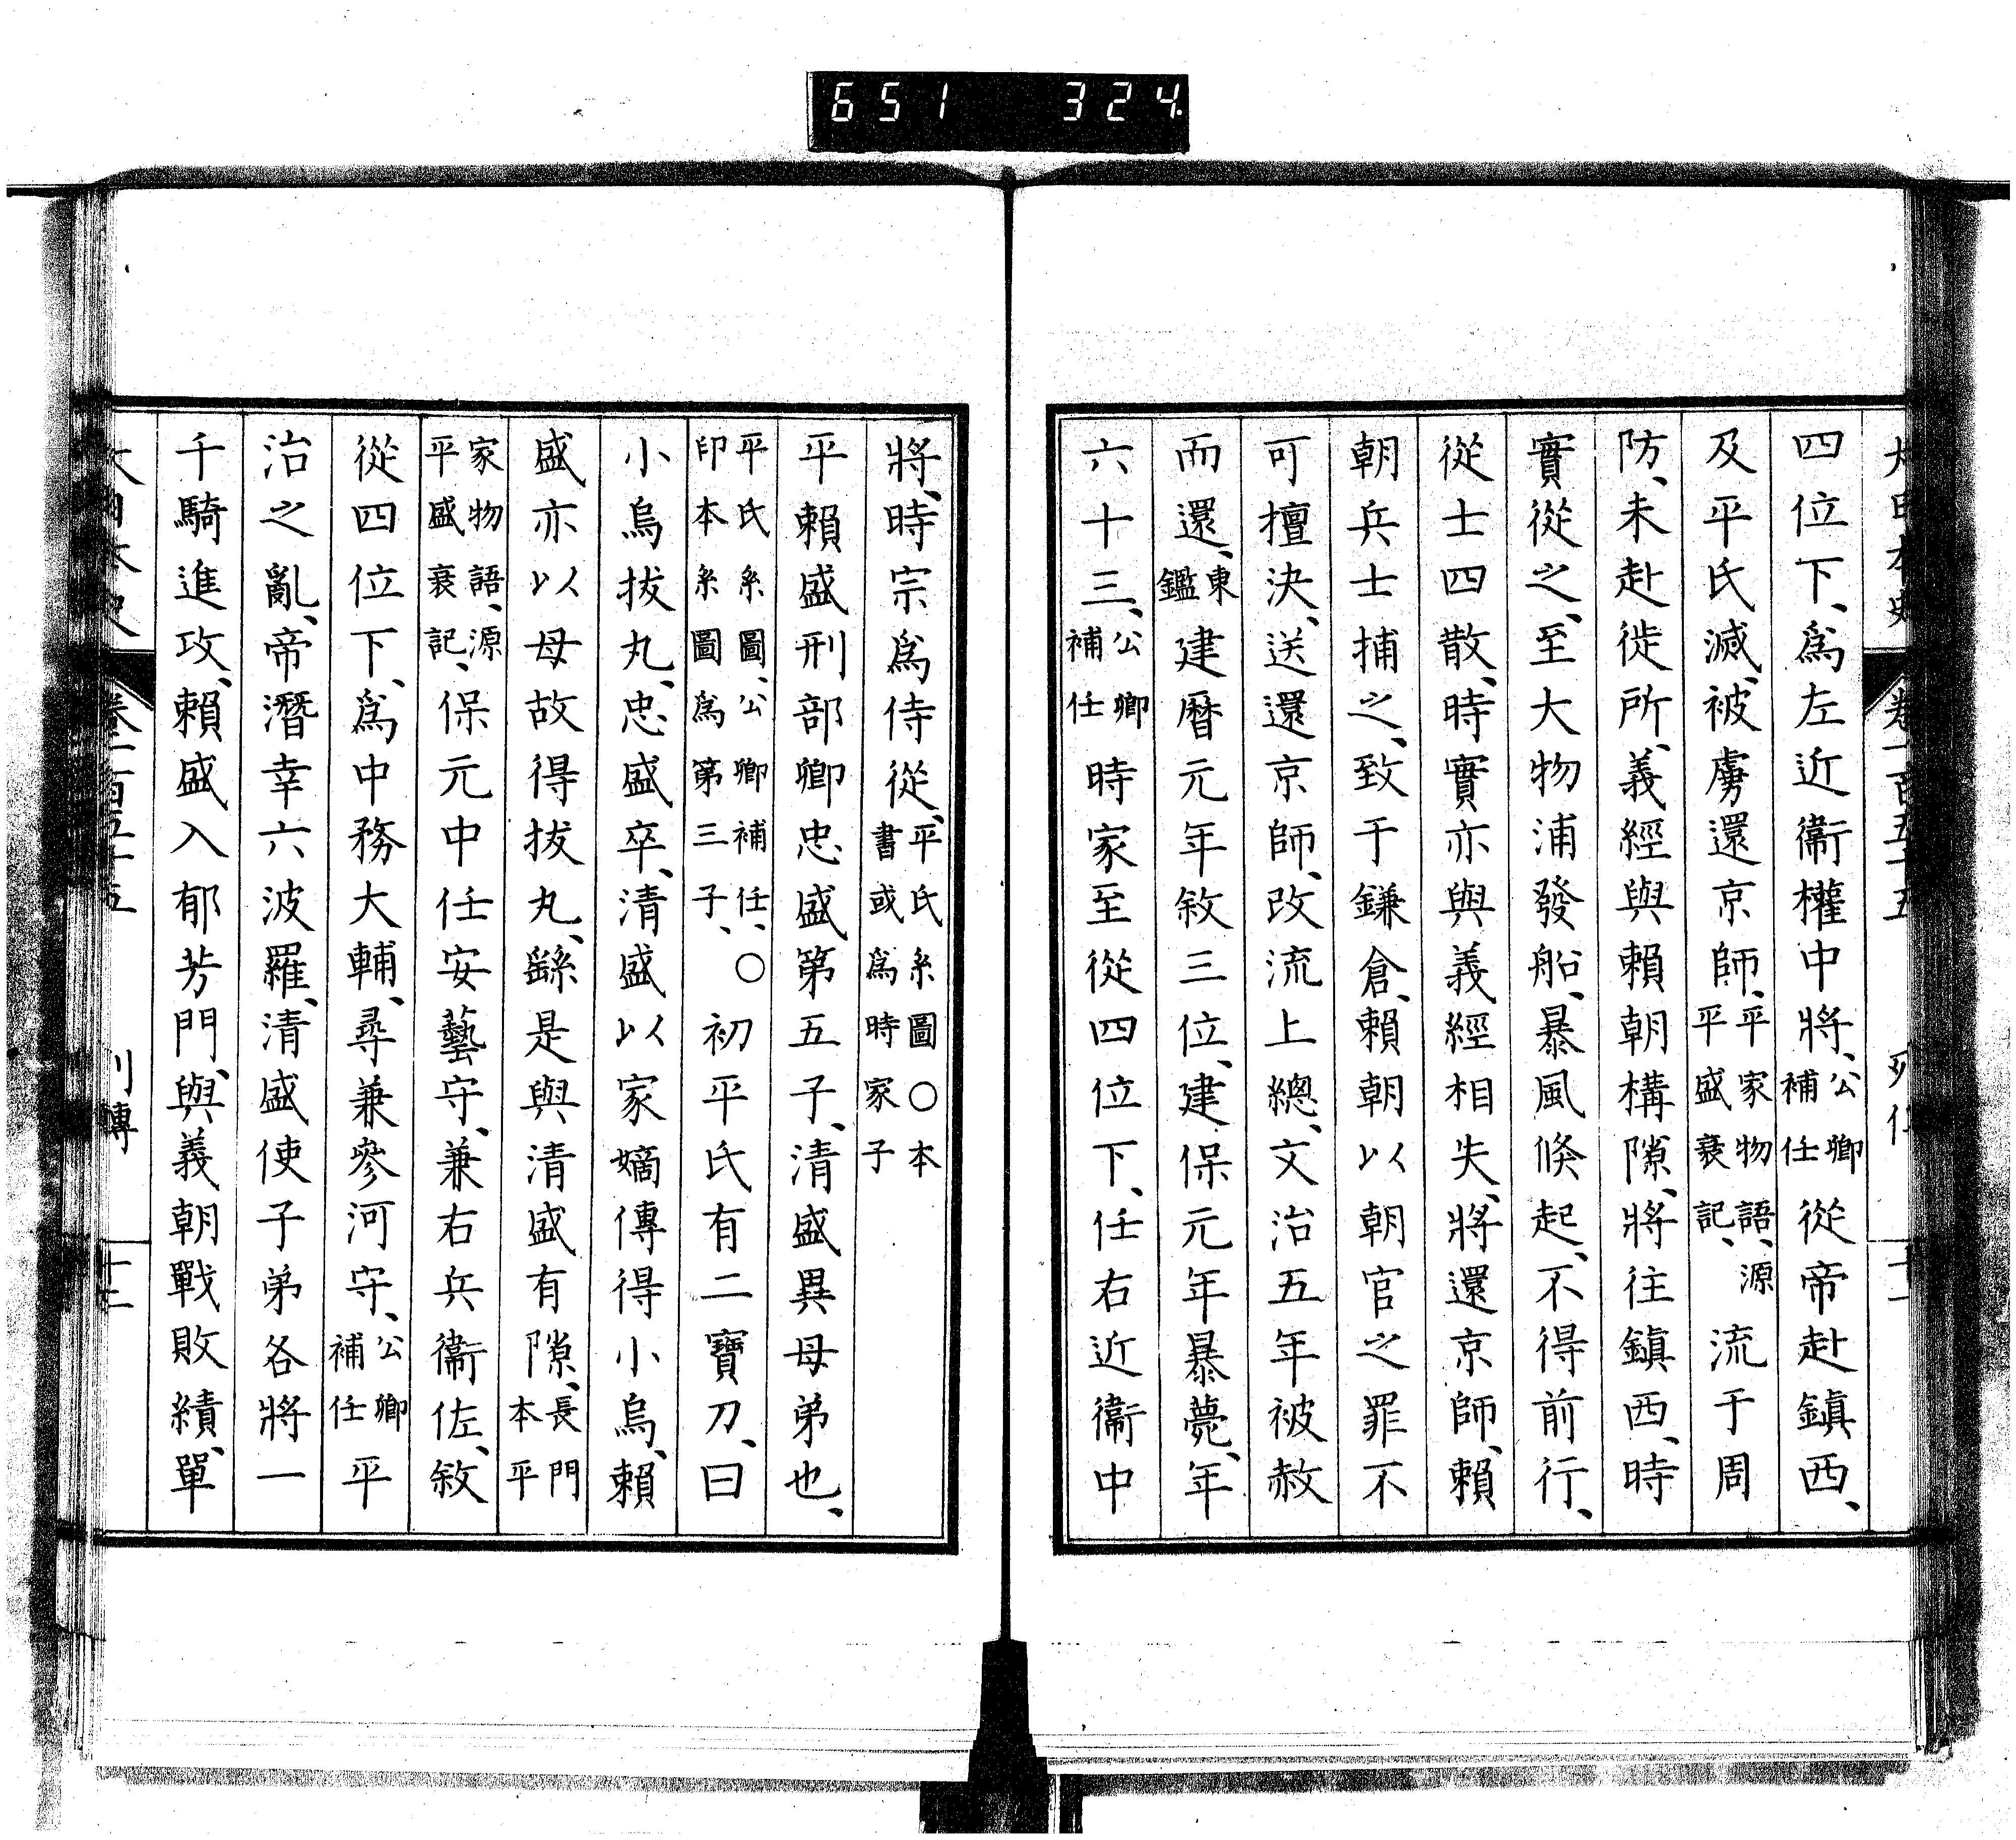 651 324
大日本史 卷一百五十五 列傳 十一
四位下、爲左近衞權中將、公卿補任從帝赴鎭西、
及平氏滅、被虜還京師、平家物語、源平盛衰記、流于周
防、未赴徙所、義經與賴朝構隙、將往鎭西、時
實從之、至大物浦發船、暴風倏起、不得前行、
從士四散、時實亦與義經相失、將還京師、賴
朝兵士捕之、致于鎌倉、賴朝以朝官之罪不
可擅決、送還京師、改流上總、文治五年被赦
而還、東鑑建曆元年敘三位、建保元年暴薨、年
六十三、公卿補任時家至從四位下、任右近衞中
將、時宗爲侍從、平氏系圖〇本書或爲時家子
平賴盛刑部卿忠盛第五子、清盛異母弟也、
平氏系圖、公卿補任、〇印本系圖爲第三子、初平氏有二寶刀、曰
小烏拔丸、忠盛卒、清盛以家嫡傳得小烏、賴
盛亦以母故得拔丸、繇是與清盛有隙、長門本平
家物語、源平盛衰記、保元中任安藝守、兼右兵衞佐、敘
從四位下、爲中務大輔、尋兼參河守、公卿補任平
治之亂、帝潛幸六波羅、清盛使子弟各將一
千騎進攻、賴盛入郁芳門、與義朝戰敗績、單
大日本史 卷一百五十五 列傳 十二